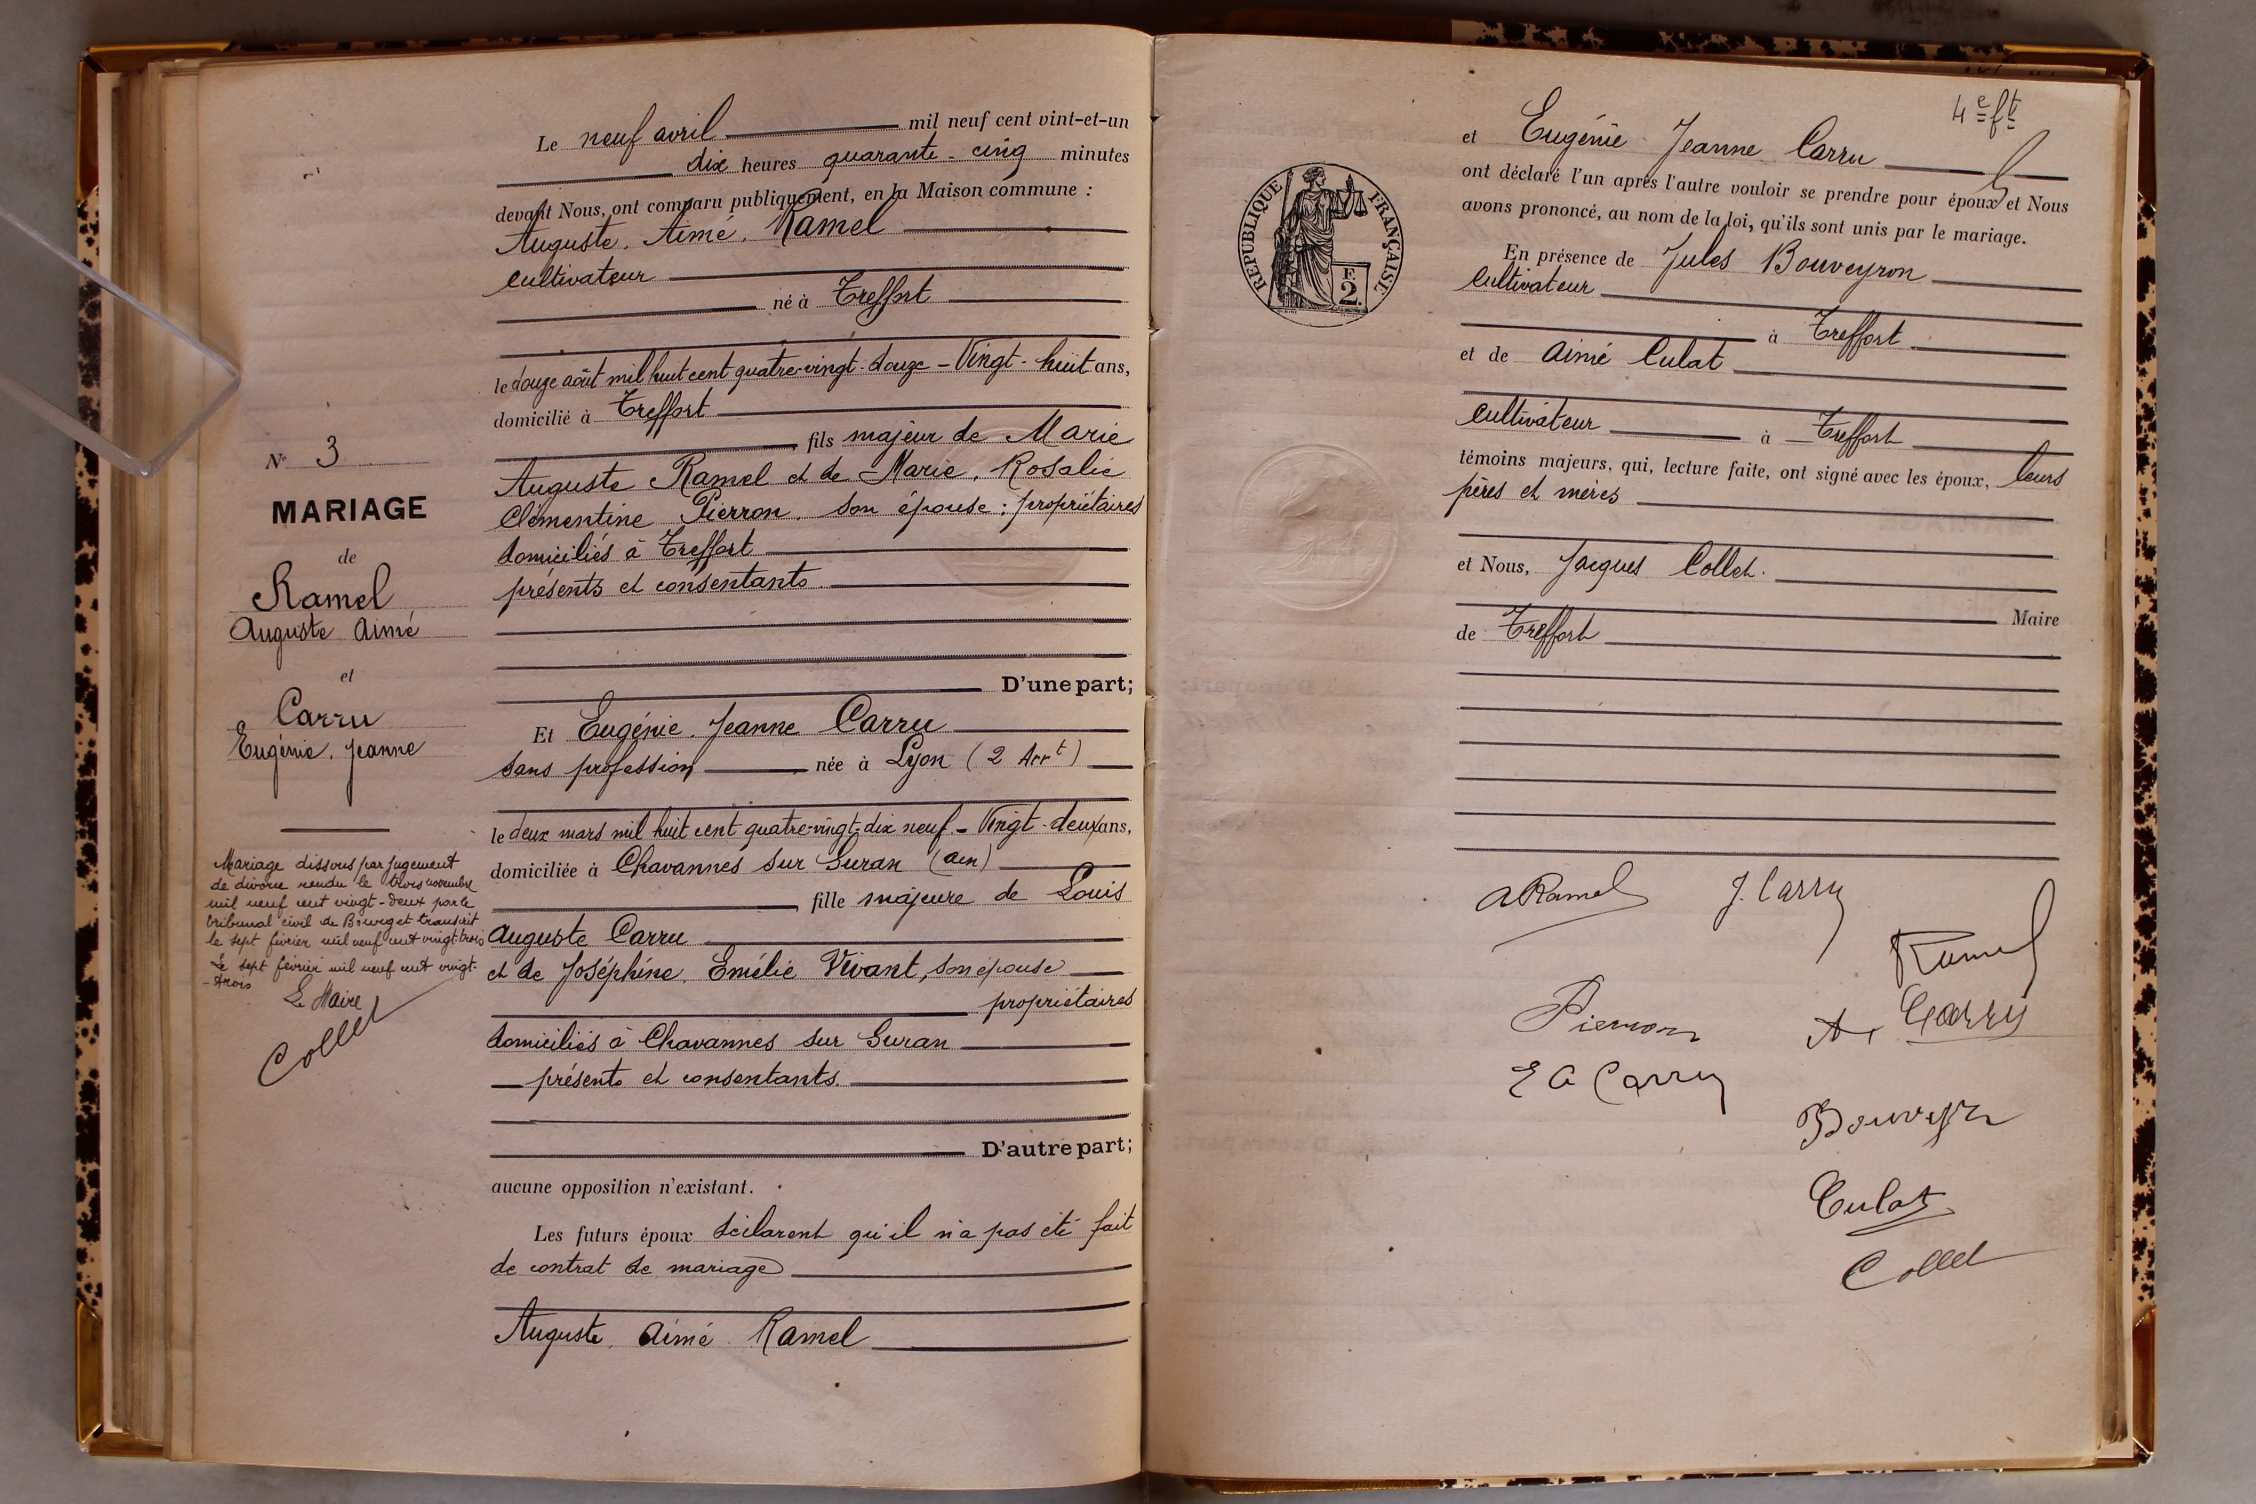 Le neuf avril mil neuf cent vint-et-un
dix heures quarante-cinq minutes
devant Nous, ont comparu publiquement, en la Maison commune :
Auguste. Aimé. Ramel
cultivateur
né à Treffort
le douze août mil huit cent quatre-vingt-douze - Vingt-huit ans,
domicilié à Treffort
fils majeur de Marie
Auguste Ramel et de Marie. Rosalie
Clémentine Pierron. son épouse ; propriétaires
domiciliés à Treffort
présents et consentants
D'une part;
Et Eugénie. Jeanne Carru
sans profession née à Lyon (2 Arrt)
le deux mars mil huit cent quatre-vingt-dix neuf - Vingt-deux ans,
domiciliée à Chavannes sur Suran (Ain)
fille majeure de Louis
Auguste Carru
et de Joséphine. Emélie Vivant, son épouse
propriétaires
domiciliés à Chavannes sur Suran
présents et consentants.
D'autre part;
aucune opposition n'existant.
Les futurs époux déclarent qu'il n'a pas été fait
de contrat de mariage
Auguste. Aimé Ramel
No 3
MARIAGE
de
Ramel
Auguste Aimé
et
Carru
Eugénie. Jeanne
Mariage dissous par jugement
de divorce rendu le trois novembre
mil neuf cent vingt-deux par le
tribunal civil de Bourg et transcrit
le sept février mil neuf cent vingt-trois
Le sept février mil neuf cent vingt-
-trois
Le Maire
Collet
4e ft
et Eugénie Jeanne Carru
ont déclaré l'un après l'autre vouloir se prendre pour époux et Nous
avons prononcé, au nom de la loi, qu'ils sont unis par le mariage.
En présence de Jules Bouveyron
cultivateur
à Treffort
et de Aimé Culat
cultivateur à Treffort
témoins majeurs, qui, lecture faite, ont signé avec les époux, leurs
pères et mères
et Nous, Jacques Collet.
Maire
de Treffort
RÉPUBLIQUE FRANÇAISE
F.
2.
A Ramel
J. Carru
Ramel
Pierron
A. Carru
E A Carru
Bouveyron
Culat
Collet